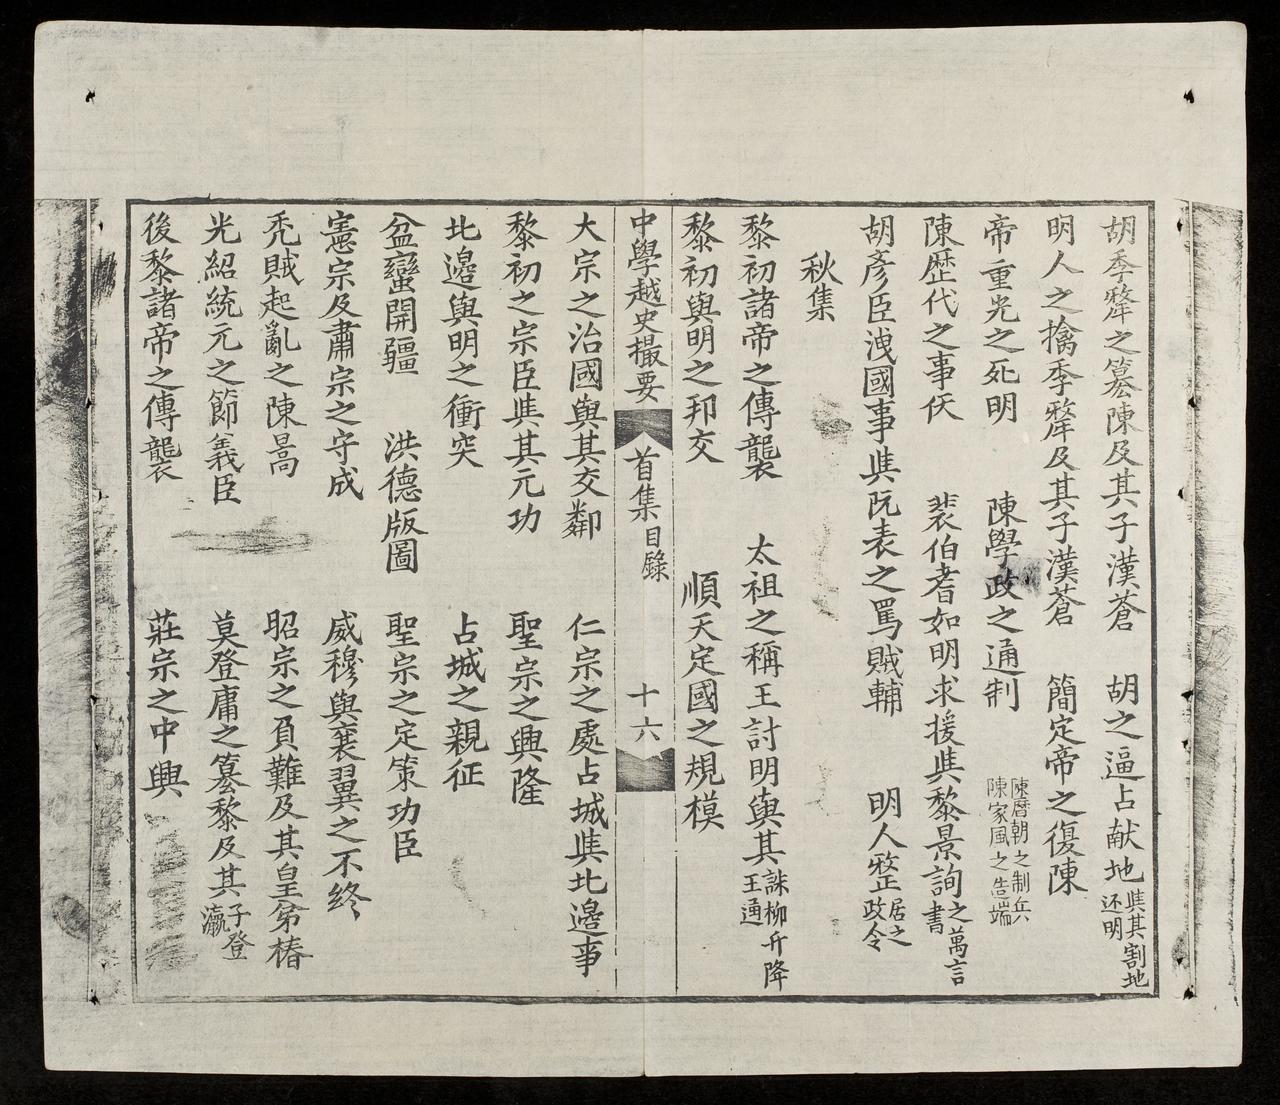 胡季犛之篡陳及其子漢蒼　胡之逼占献地 與其割地还明
明人之擒季犛及其子漢蒼　簡定帝之復陳
帝重光之死明　陳學政之通制 陳曆朝之制兵 陳家風之造端
陳歴代之事仸　裴伯耆如明求援與黎景詢之萬言書
胡彥臣洩國事與阮表之罵賊輔　明人整居之政令
秋集
黎初諸帝之傳襲　太祖之稱王討明與其 誅柳升降王通
黎初與明之邦交　順天定國之規模
中學越史撮要　首集目錄　十六
大宗之治國與其交鄰　仁宗之處占城與北邊事
黎初之宗臣與其元功　聖宗之興隆
北邊與明之衝突　占城之親征
盆蠻開疆　洪德版圖　聖宗之定策功臣
憲宗及肅宗之守成　威穆與襄翼之不終
禿賊起亂之陳暠　昭宗之負難及其皇弟椿
光紹統元之節義臣　莫登庸之篡黎及其子登瀛
後黎諸帝之傳襲　莊宗之中興